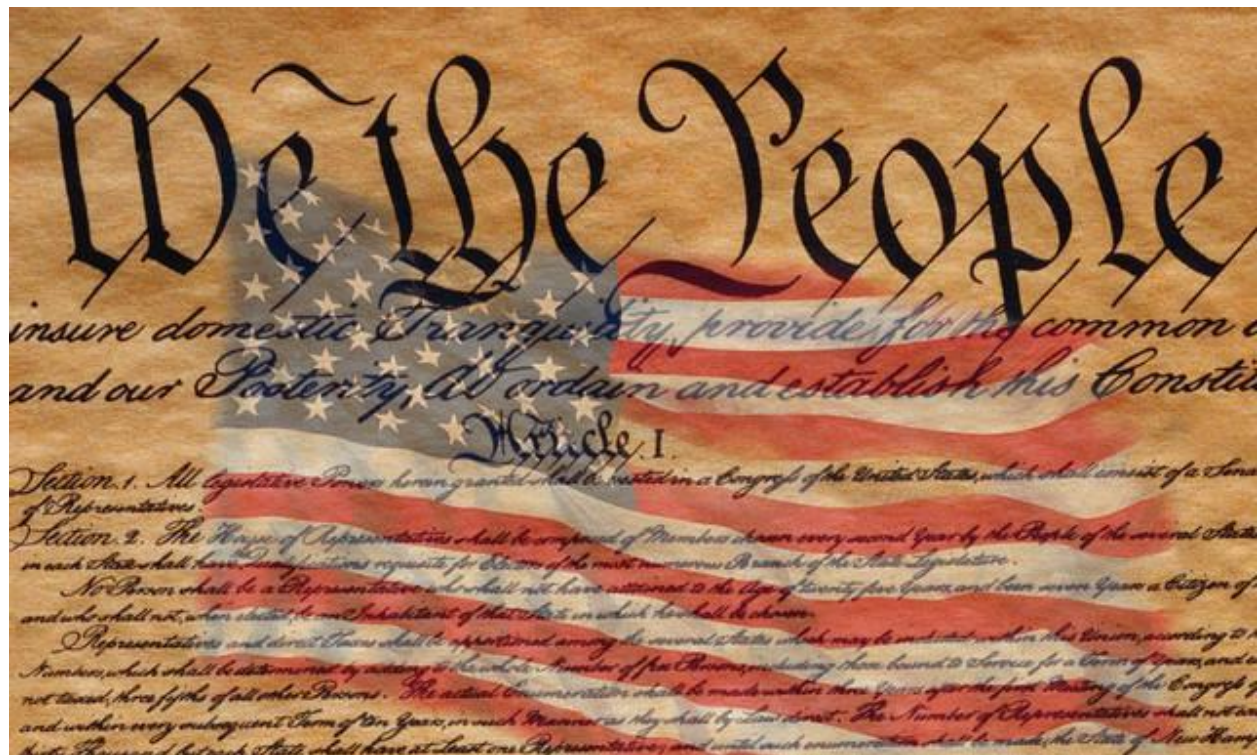 We the People
insure domestic Tranquility, provide for the common
and our Posterity, do ordain and establish this Constit
Article. I.
Section. 1. All legislative Powers herein granted shall be vested in a Congress of the United States, which shall consist of a Sena
of Representatives.
Section. 2. The House of Representatives shall be composed of Members chosen every second Year by the People of the several States
in each State shall have Qualifications requisite for Electors of the most numerous Branch of the State Legislature.
No Person shall be a Representative who shall not have attained to the Age of twenty five Years, and been seven Years a Citizen of
and who shall not, when elected, be an Inhabitant of that State in which he shall be chosen.
Representatives and direct Taxes shall be apportioned among the several States which may be included within this Union, according to
Numbers, which shall be determined by adding to the whole Number of free Persons, including those bound to Service for a Term of Years, and
not taxed, three fifths of all other Persons. The actual Enumeration shall be made within three Years after the first Meeting of the Congress
and within every subsequent Term of ten Years, in such Manner as they shall by Law direct. The Number of Representatives shall not
thirty Thousand, but each State shall have at Least one Representative; and until such enumeration shall be made, the State of New Ham